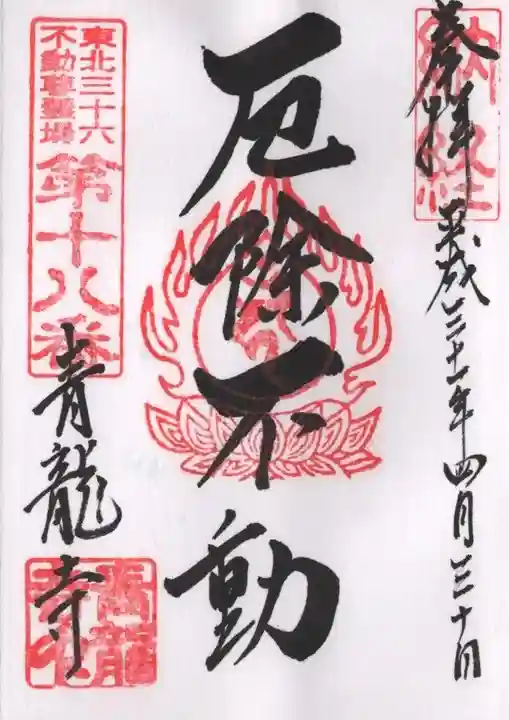 納経
奉拝
平成三十一年四月三十日
厄除不動
東北三十六
不動尊霊場
第十八番
青龍寺